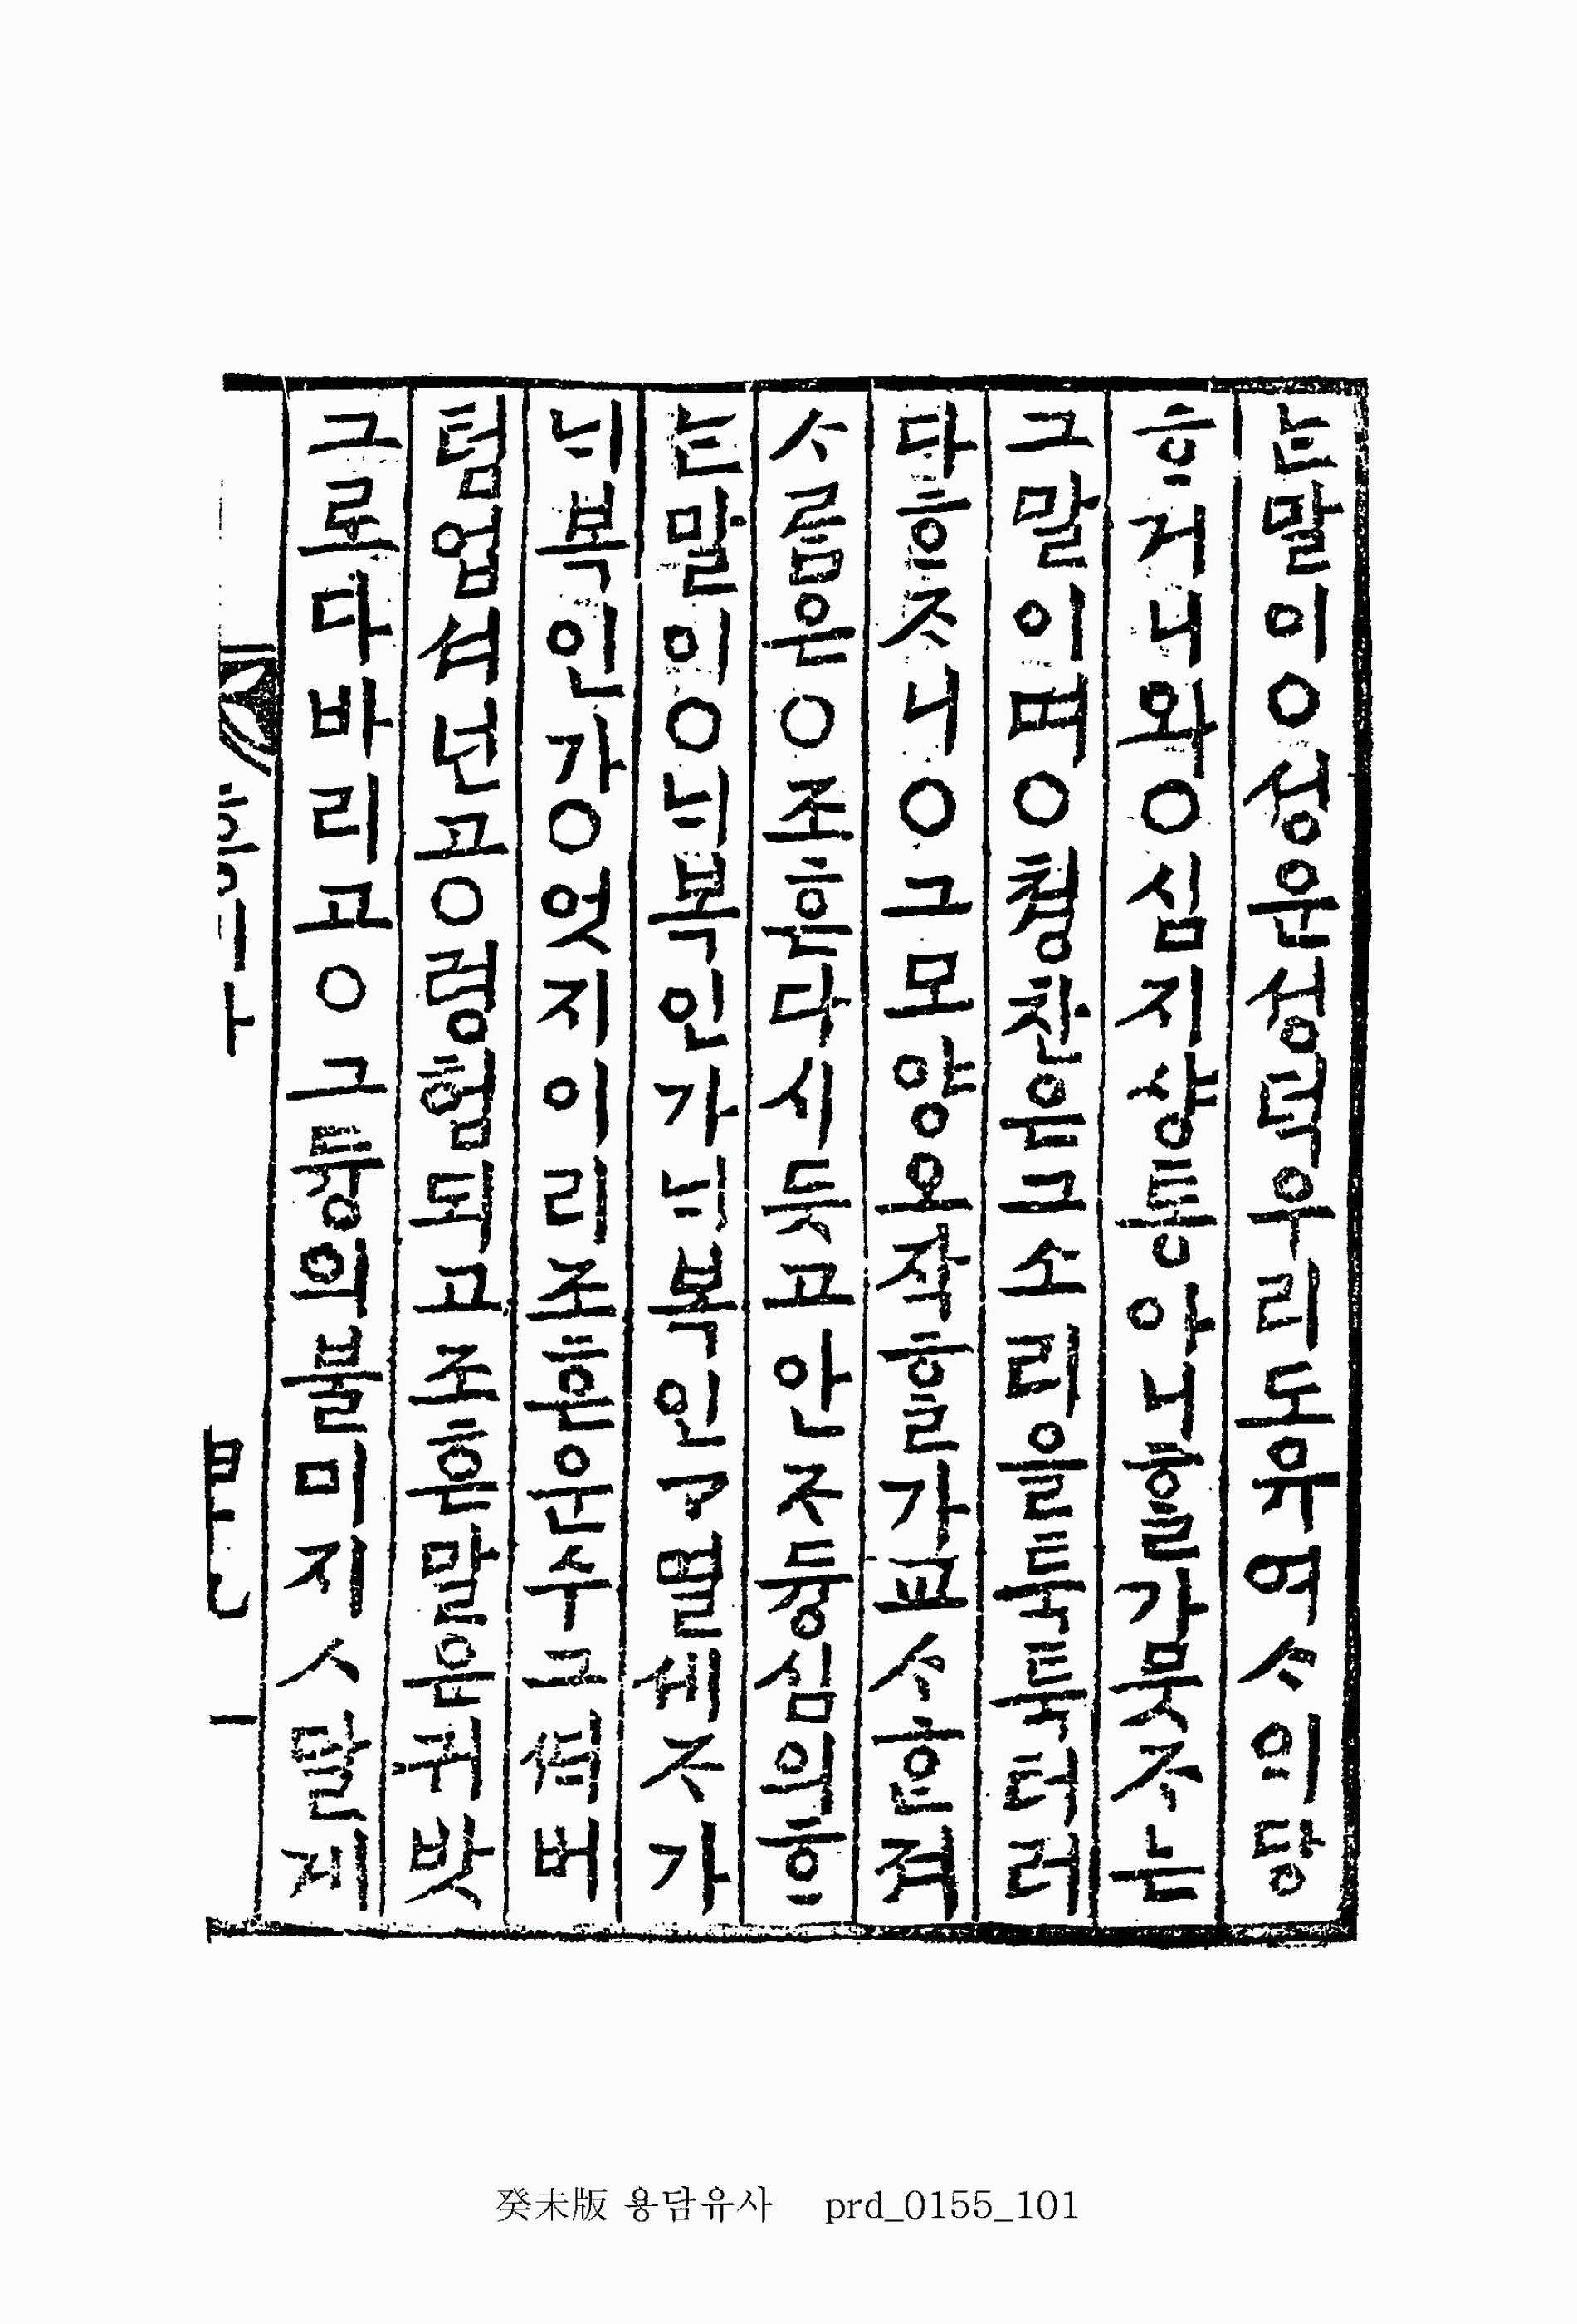 는말이○성운성덕우리도유여ᄉ의당
ᄒ거니와○심지샹통아니ᄒᆞᆯ가뭇ᄌᆞ는
그말이며○쳥찬은그소ᄅᆡ을툭툭터러
다ᄒᆞᄌᆞ니○그모양오작ᄒᆞᆯ가교ᄉᆞᄒᆞᆫ져
ᄉᆞᄅᆞᆷ은○조흔다시듯고안ᄌᆞ듕심의ᄒᆞ
ᄂᆞᆫ말이○ᄂᆡ복인가ᄂᆡ복인ᄀᆞ열세ᄌᆞ가
ᄂᆡ복인가○엇지이리조흔운수그ᄯᅥ버
텀업셔넌고○령험되고조흔말은귀밧
그로다바리고○그듕의불미지ᄉᆞ달게
흥비가
癸未版 용담유사 prd_0155_101